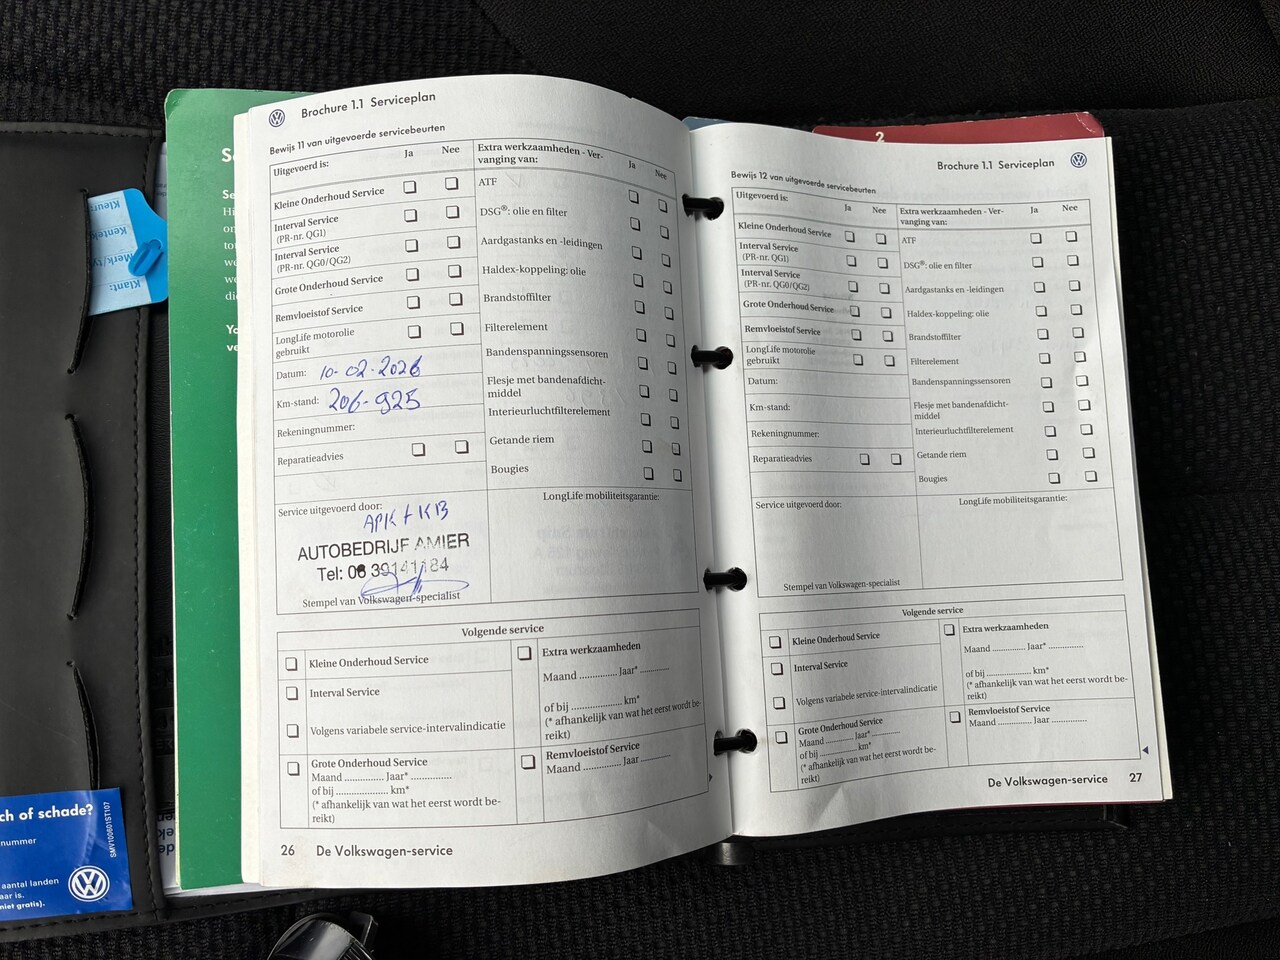 Brochure 1.1 Serviceplan
Bewijs 11 van uitgevoerde servicebeurten
Uitgevoerd is:
Ja
Nee
Kleine Onderhoud Service
Interval Service
(PR-nr. QG1)
Interval Service
(PR-nr. QG0/QG2)
Grote Onderhoud Service
Remvloeistof Service
LongLife motorolie
gebruikt
Datum: 10-02-2026
Km-stand: 206-925
Rekeningnummer:
Reparatieadvies
Extra werkzaamheden - Ver-
vanging van:
Ja
Nee
ATF
DSG®: olie en filter
Aardgastanks en -leidingen
Haldex-koppeling: olie
Brandstoffilter
Filterelement
Bandenspanningssensoren
Flesje met bandenafdicht-
middel
Interieurluchtfilterelement
Getande riem
Bougies
Service uitgevoerd door:
APK + KB
AUTOBEDRIJF AMIER
Tel: 06 39141184
Stempel van Volkswagen-specialist
LongLife mobiliteitsgarantie:
Volgende service
Kleine Onderhoud Service
Interval Service
Volgens variabele service-intervalindicatie
Grote Onderhoud Service
Maand .............. Jaar* ..............
of bij ........................ km*
(* afhankelijk van wat het eerst wordt be-
reikt)
Extra werkzaamheden
Maand ............. Jaar* .............
of bij ...................... km*
(* afhankelijk van wat het eerst wordt be-
reikt)
Remvloeistof Service
Maand ............. Jaar .............
26 De Volkswagen-service
2
Brochure 1.1 Serviceplan
Bewijs 12 van uitgevoerde servicebeurten
Uitgevoerd is:
Ja
Nee
Kleine Onderhoud Service
Interval Service
(PR-nr. QG1)
Interval Service
(PR-nr. QG0/QG2)
Grote Onderhoud Service
Remvloeistof Service
LongLife motorolie
gebruikt
Datum:
Km-stand:
Rekeningnummer:
Reparatieadvies
Extra werkzaamheden - Ver-
vanging van:
Ja
Nee
ATF
DSG®: olie en filter
Aardgastanks en -leidingen
Haldex-koppeling: olie
Brandstoffilter
Filterelement
Bandenspanningssensoren
Flesje met bandenafdicht-
middel
Interieurluchtfilterelement
Getande riem
Bougies
Service uitgevoerd door:
Stempel van Volkswagen-specialist
LongLife mobiliteitsgarantie:
Volgende service
Kleine Onderhoud Service
Interval Service
Volgens variabele service-intervalindicatie
Grote Onderhoud Service
Maand ............ Jaar* ............
of bij .................... km*
(* afhankelijk van wat het eerst wordt be-
reikt)
Extra werkzaamheden
Maand ............ Jaar* ............
of bij .................... km*
(* afhankelijk van wat het eerst wordt be-
reikt)
Remvloeistof Service
Maand ............ Jaar ............
De Volkswagen-service 27
Kleur:
Kentek
Merk/ty
Klant:
ch of schade?
nummer
aantal landen
aar is.
niet gratis).
SMV100601ST107